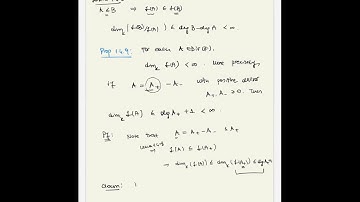 A ≤ B ⇒ 𝓛(A) ⊆ 𝓛(B)
dim_k (𝓛(B)/𝓛(A)) ≤ deg B - deg A < ∞
Prop 1.4.9: For each A ∈ Div(F),
dim_k 𝓛(A) < ∞. More precisely,
if A = A₊ - A₋ with positive divisor
A₊, A₋ ≥ 0. Then
dim_k 𝓛(A) ≤ deg A₊ + 1 < ∞
Pf: Note that A = A₊ - A₋ ≤ A₊
⇒ 𝓛(A) ⊆ 𝓛(A₊)
⇒ dim_k (𝓛(A)) ≤ dim_k (𝓛(A₊)) ≤ deg A₊
Claim: